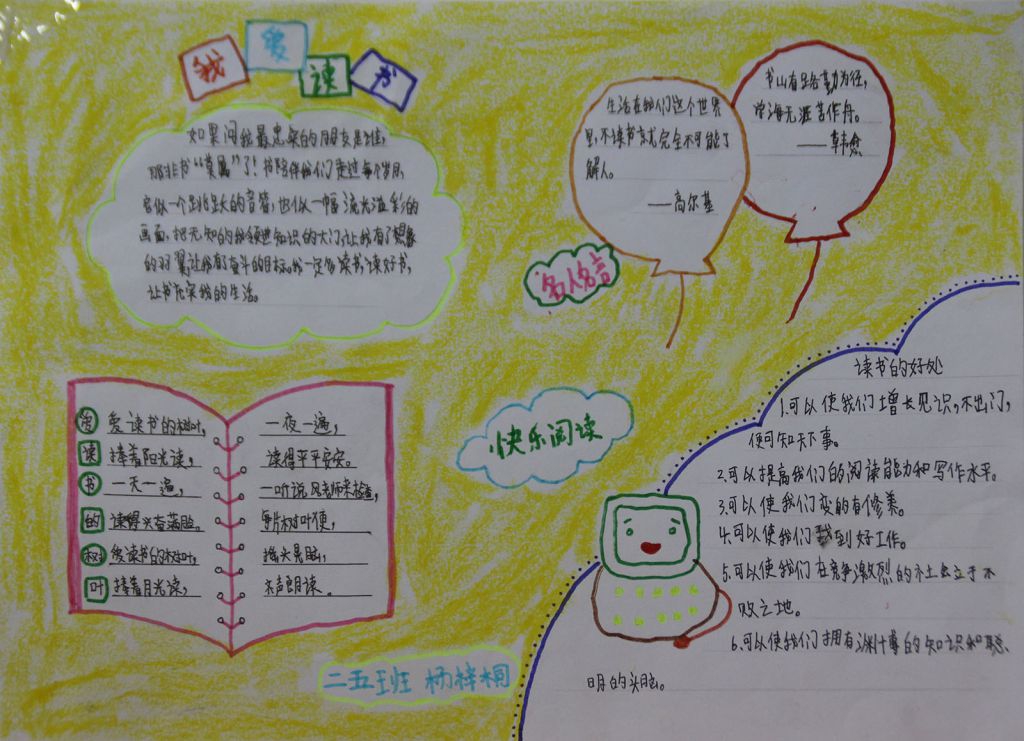 我爱读书
如果问我最忠实的朋友是谁,
那非书“莫属”了!书陪伴我们走过每个岁月,
它似一个跳跃的音符,也似一幅流光溢彩的
画面,把无知的我领进知识的大门,让我有了想象
的羽翼,让我有了奋斗的目标。我一定多读书,读好书,
让书充实我的生活。
生活在我们这个世界
里,不读书就完全不可能了
解人。
——高尔基
书山有路勤为径,
学海无涯苦作舟。
——韩愈
名人名言
爱读书的树叶
爱读书的树叶,
捧着阳光读,
一天一遍,
读得兴奋满脸。
爱读书的树叶,
捧着月光读,
一夜一遍,
读得平平安安。
一听说风老师来检查,
每片树叶便,
摇头晃脑,
大声朗读。
快乐阅读
读书的好处
1.可以使我们增长见识,不出门,
便可知天下事。
2.可以提高我们的阅读能力和写作水平。
3.可以使我们变的有修养。
4.可以使我们找到好工作。
5.可以使我们在竞争激烈的社会立于不
败之地。
6.可以使我们拥有渊博的知识和聪
明的头脑。
二五班 杨梓桐